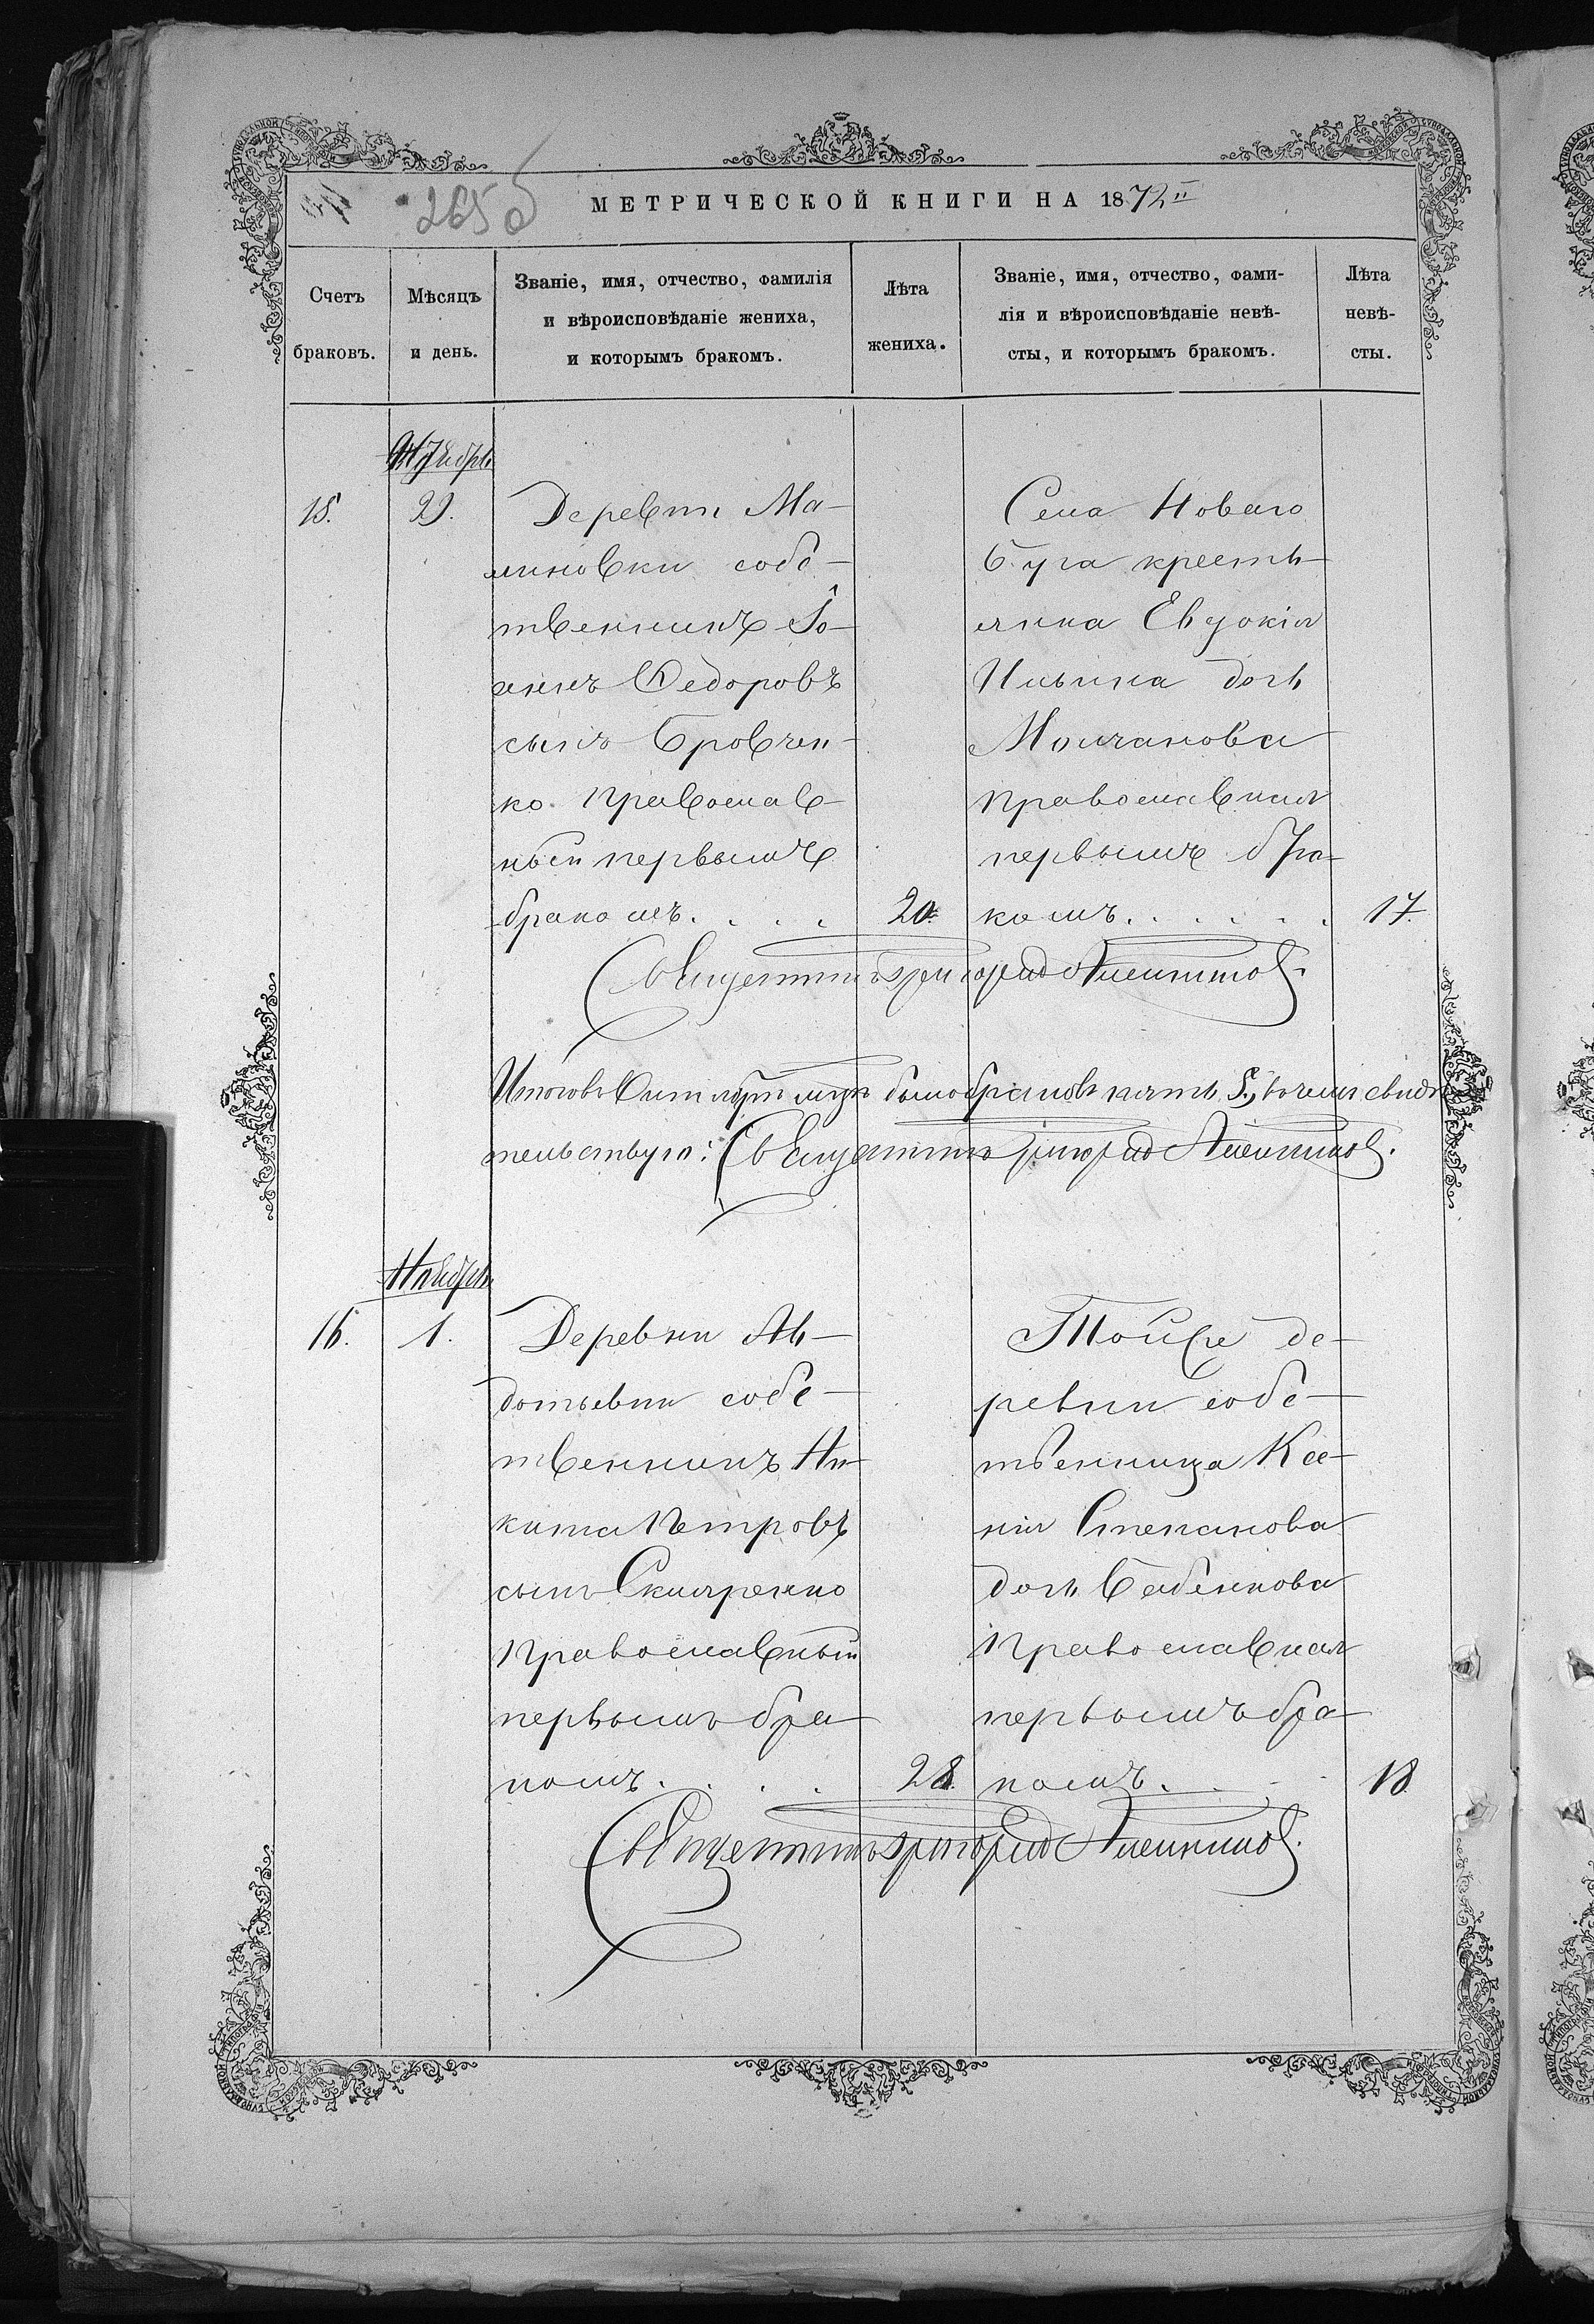 265 об
МЕТРИЧЕСКОЙ КНИГИ НА 1872й
Счетъ браковъ.
Мѣсяцъ и день.
Званіе, имя, отчество, фамилія
и вѣроисповѣданіе жениха,
и которымъ бракомъ.
Лѣта жениха.
Званіе, имя, отчество, фами-
лія и вѣроисповѣданіе невѣ-
сты, и которымъ бракомъ.
Лѣта невѣ-
сты.
Октябрь
15.
29.
Деревни Ма-
линовки собс-
твенникъ Іо-
аннъ Ѳедоровъ
сынъ Бровчен-
ко Православ-
ный первымъ
бракомъ. . . .
20.
Села Новаго
Буга кресть-
янка Евдокія
Ильина дочь
Молчанова
Православная
первымъ бра-
комъ. . . . . .
17.
Священникъ Григорій
Итого въ Октябрѣ мцѣ было браковъ пять 5, въ чемъ свидѣ-
тельствую: Священникъ Григорій
Ноябрь
16.
1.
Деревни Ав-
дотьевки собс-
твенникъ Ни-
кита Петровъ
сынъ Скляренко
Православный
первымъ бра-
комъ. . . .
28.
Той же де-
ревни собс-
твенница Ксе-
нія Степанова
дочь Бабенкова
Православная
первымъ бра-
комъ. . . .
18.
Священникъ Григорій